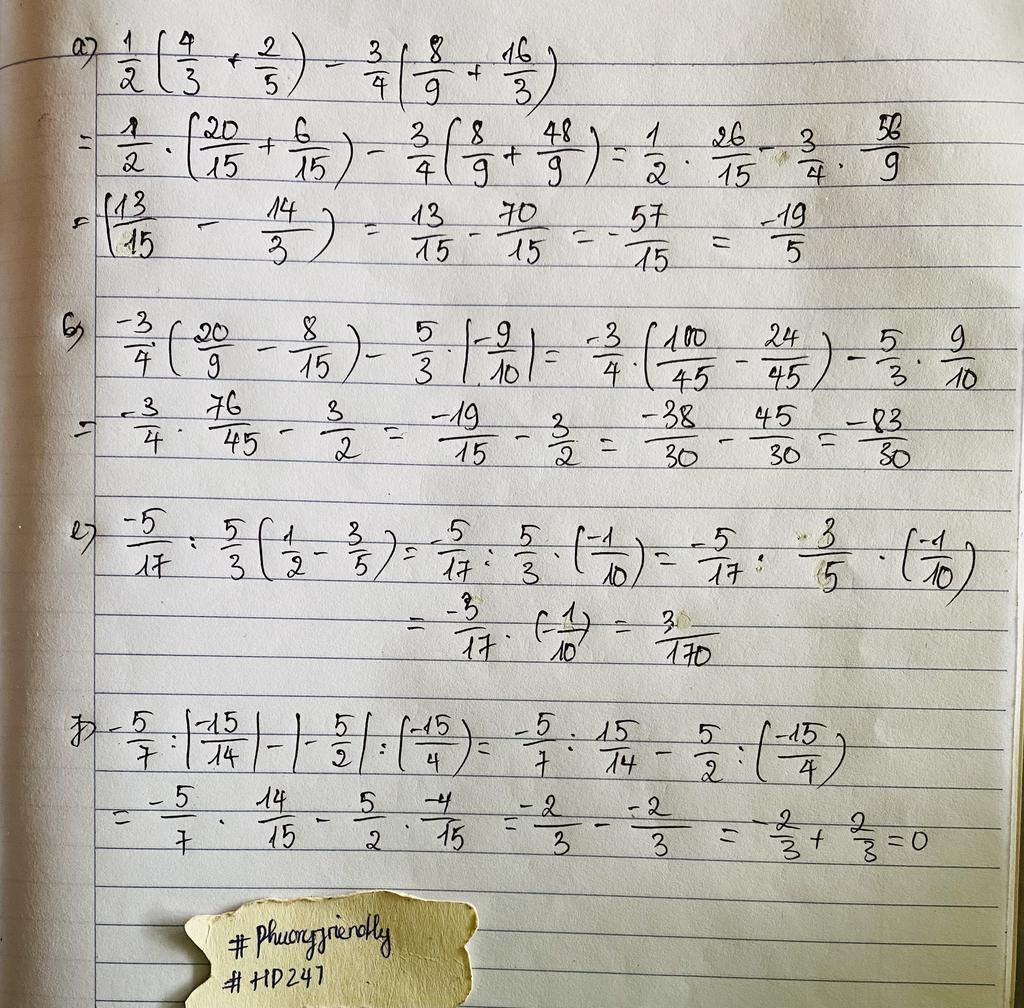 a) 1/2 (4/3 + 2/5) - 3/4 (8/9 + 16/3)
= 1/2 . (20/15 + 6/15) - 3/4 (8/9 + 48/9) = 1/2 . 26/15 - 3/4 . 56/9
= (13/15 - 14/3) = 13/15 - 70/15 = -57/15 = -19/5
b) -3/4 (20/9 - 8/15) - 5/3 . |-9/10| = -3/4 . (100/45 - 24/45) - 5/3 . 9/10
= -3/4 . 76/45 - 3/2 = -19/15 - 3/2 = -38/30 - 45/30 = -83/30
e) -5/17 : 5/3 (1/2 - 3/5) = -5/17 : 5/3 . (-1/10) = -5/17 : 3/5 . (-1/10)
= -3/17 . (-1/10) = 3/170
f) -5/7 : |-15/14| - |-5/2| : (-15/4) = -5/7 : 15/14 - 5/2 : (-15/4)
= -5/7 . 14/15 - 5/2 . -4/15 = -2/3 - -2/3 = -2/3 + 2/3 = 0
#Phuongfriendly
#HD247